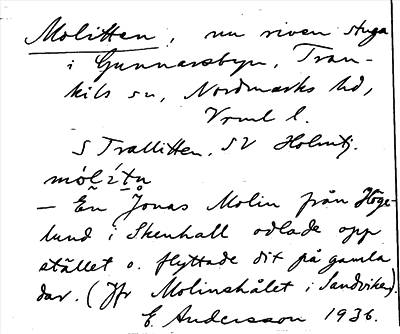 Molitten, nu riven stuga
i Gunnarsbyn, Tran-
kils sn, Nordmarks hd,
Vrml l.
S Trallitten. SV Holmtj.
mólítn
— En Jonas Molin från Höge-
lund i Skenhall odlade opp
stället o. flyttade dit på gamla
dar. (Jfr Molinshålet i Sandviken).
E. Andersson 1936.